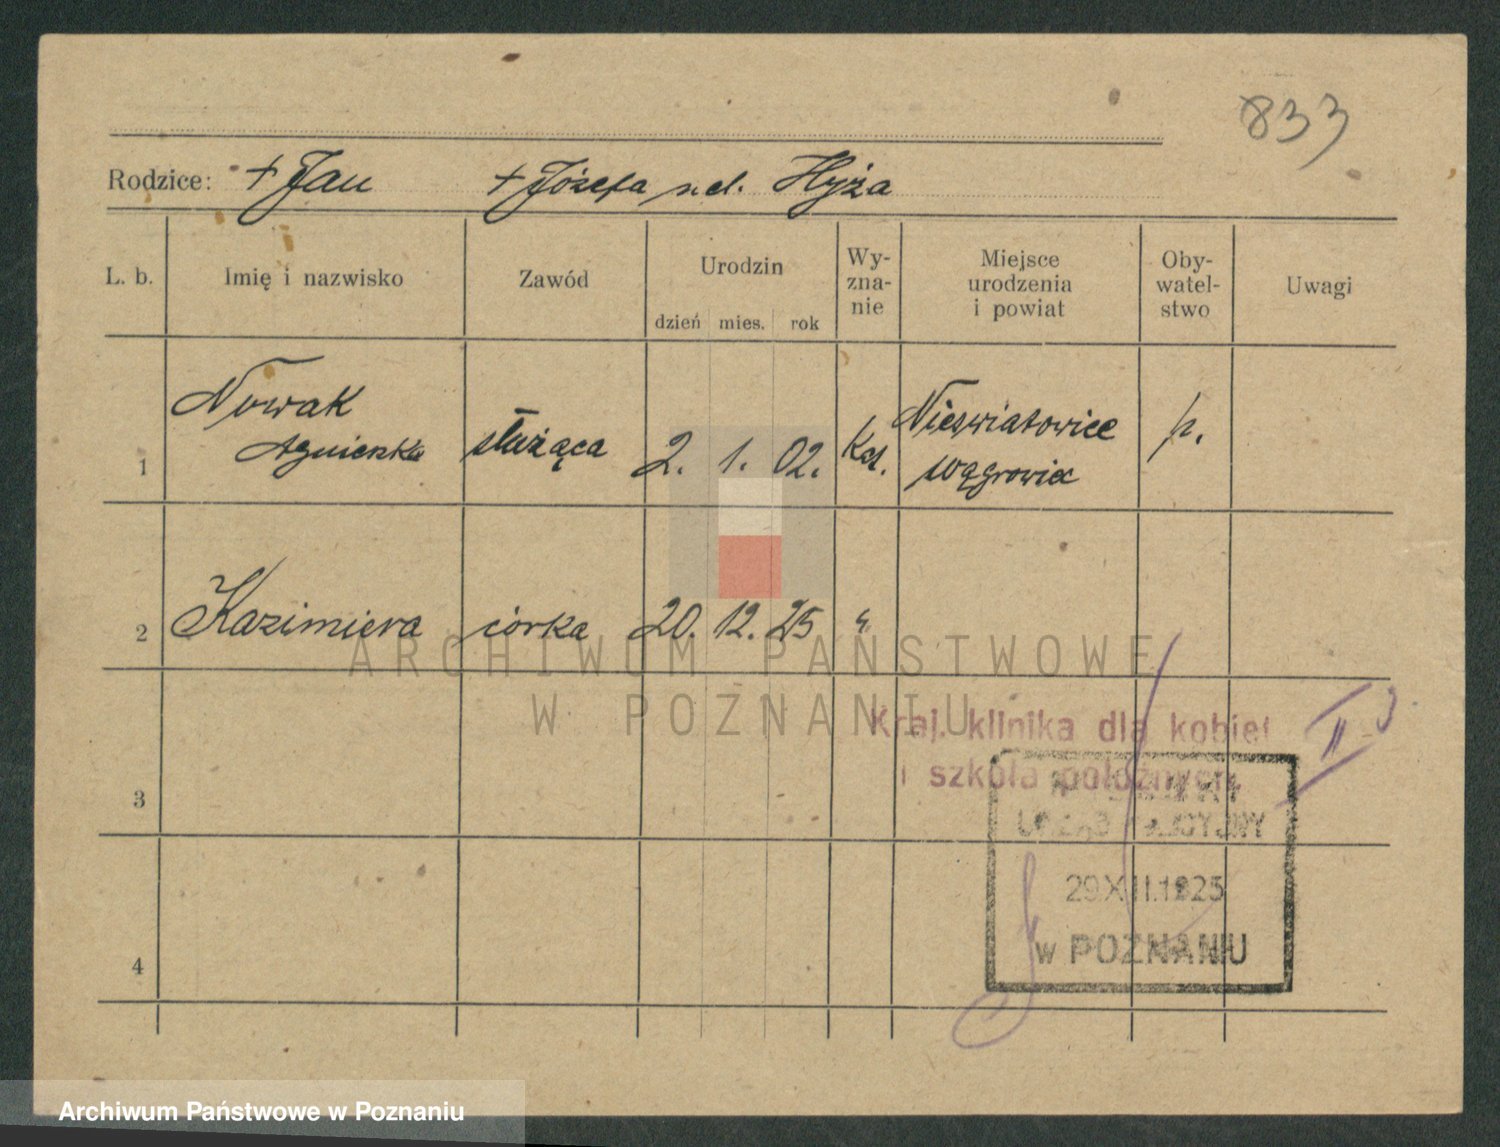 833
Rodzice: + Jan + Józefa z d. Hyża
L. b. Imię i nazwisko Zawód Urodzin Wy- Miejsce Oby- Uwagi
zna- urodzenia watel-
dzień mies. rok nie i powiat stwo
Nowak Nieświatowice
1 Agnieszka służąca 2. 1. 02. Kat. p.
Wągrowiec
2 Kazimiera córka 20. 12. 25 "
ARCHIWUM PAŃSTWOWE
W POZNANIU
Kraj. klinika dla kobiet II
i szkoła położnych
3
URZĄD POLICYJNY
29.XII.1925
4 w POZNANIU
Archiwum Państwowe w Poznaniu